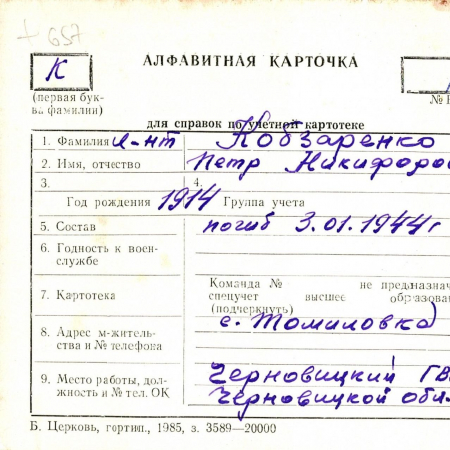 + 657
К
АЛФАВИТНАЯ КАРТОЧКА
(первая бук-
ва фамилии)
для справок по учетной картотеке
1. Фамилия л-нт Кобзаренко
2. Имя, отчество Петр Никифоров
3. 4.
Год рождения 1914 Группа учета
5. Состав погиб 3.01.1944г
6. Годность к воен-
службе
7. Картотека
Команда № не предназнач
спецучет высшее образова
(подчеркнуть)
8. Адрес м-житель-
ства и № телефона
с. Томиловка)
9. Место работы, дол-
жность и № тел. ОК
Черновицкий ГВ
Черновицкой обл.
Б. Церковь, гортип., 1985, з. 3589—20000